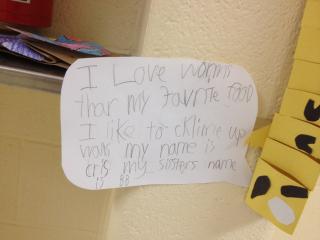 I Love worms
thar my favrite food
I like to cklime up
wals my name is
cris my sisters name
is BB